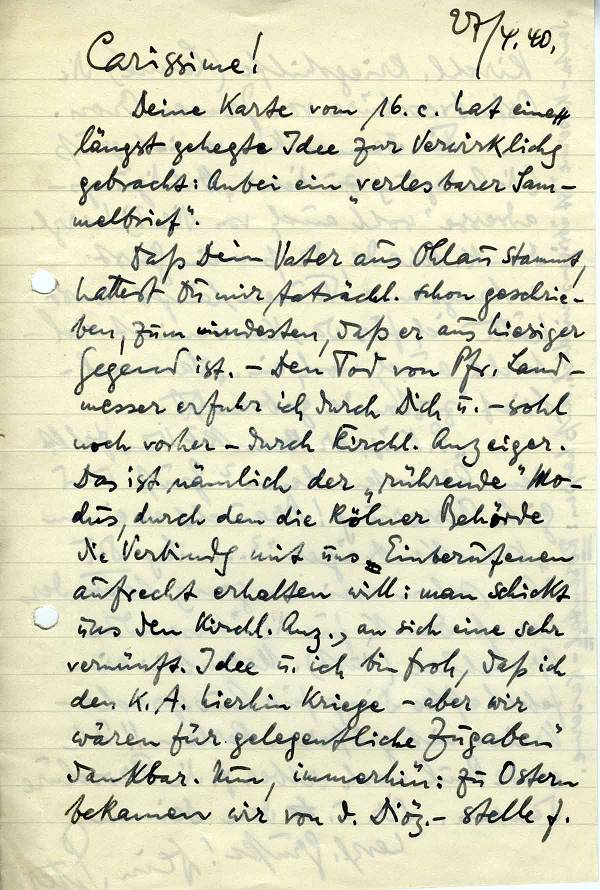 27/4.40.
Carissime!
Deine Karte vom 16. c. hat eine
längst gehegte Idee zur Verwirklichg
gebracht: Anbei ein "verlesbarer Sam-
melbrief".
Daß Dein Vater aus Ohlau stammt,
hattest Du mir tatsächl. schon geschrie-
ben, zum mindesten, daß er aus hiesiger
Gegend ist. – Den Tod von Pfr. Land-
messer erfuhr ich durch Dich u. – wohl
noch vorher – durch Kirchl. Anzeiger.
Das ist nämlich der „rührende" Mo-
dus, durch den die Kölner Behörde
die Verbindg mit uns Einberufenen
aufrecht erhalten will: man schickt
uns den Kirchl. Anz., an sich eine sehr
vernünft. Idee u. ich bin froh, daß ich
den K. A. hierhin kriege – aber wir
wären für gelegentliche „Zugaben"
dankbar. Nun, immerhin: zu Ostern
bekamen wir von d. Diöz.- stelle f.